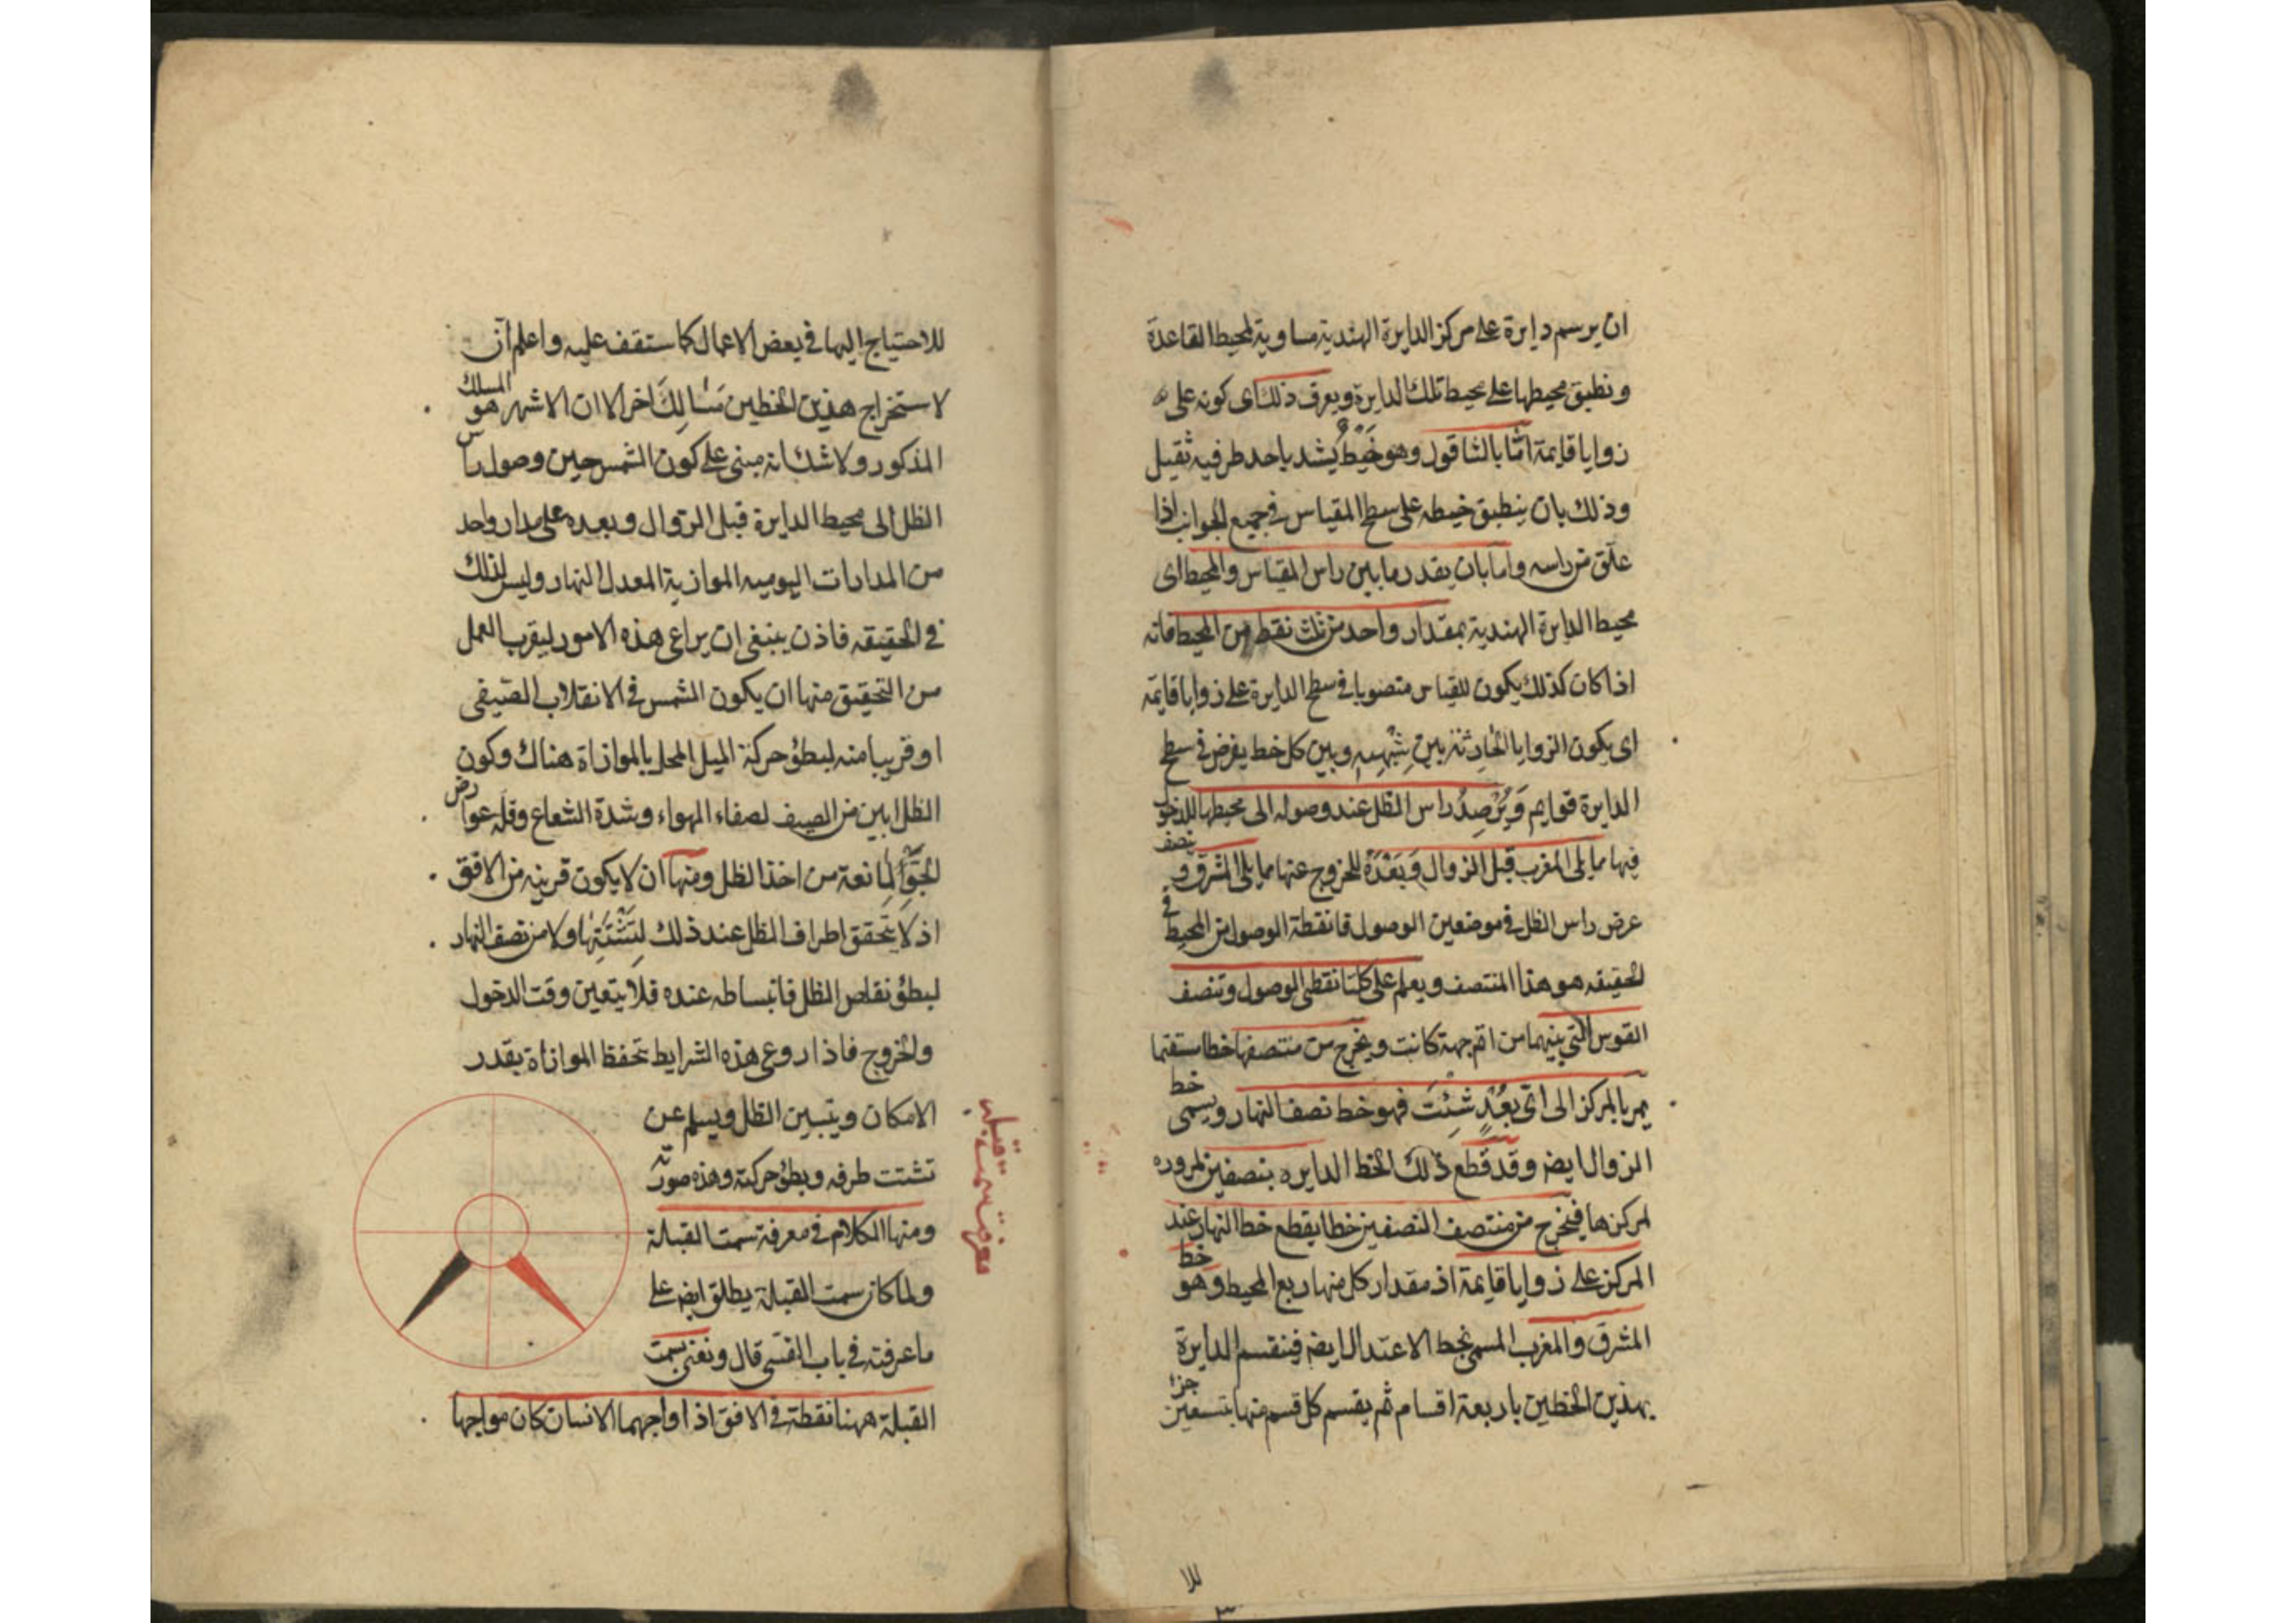 ان يرسم دايرة على مركز الدايرة الهندية مساوية لمحيط القاعدة
ونطبق محيطها على محيط تلك الدايرة ويعرف ذلك اى كونه على
زوايا قايمة امّا بالشاقول وهو خَيطٌ يُشد باحد طرفيه ثقيل
وذلك بان ينطبق خيطه على سطح المقياس فى جميع الجوانب اذا
علّق من راسه واما بان يقدر ما بين راس المقياس والمحيط اى
محيط الدايرة الهندية بمقدار واحد من ثلث نقط من المحيط فانه
اذا كان كذلك يكون المقياس منصوبا فى سطح الدايرة على زوايا قايمة
اى يكون الزوايا الحادثة بين سهمه وبين كل خط يفرض فى سطح
الدايرة قوايم وَيُرْصدُ راس الظل عند وصوله الى محيطها للدخول
فيها مما يلى المغرب قبل الزوال وَبَعْدَهُ للخروج عنها مما يلى المشرق و نصف
عرض راس الظل فى موضعين الوصول فا نقطة الوصول من المحيط فى
الحقيقه هو هذا المنتصف ويعلم على كلتا نقطى الوصول وتنصف
القوس التى بينهما من اىّ جهة كانت ويخرج من منتصفها خطا مستقيما
يمر بالمركز الى اىّ بُعْدٍ شِئتَ فهو خط نصف النهار ويسمى خط
الزوال ايضا وقد قطع ذلك الخط الدايره بنصفين لمروره
لمركزها فيخرج من منتصف النصفين خطا يقطع خط النهار عند
المركز على زوايا قايمة اذ مقدار كل منها ربع المحيط وهو خط
المشرق والمغرب المسمى بخط الاعتدال ايضا فينقسم الدايرة
بهذين الخطين باربعة اقسام ثم يقسم كل قسم منها بتسعين جزا
للا
للاحتياج اليها فى بعض الاعمال كما ستقف عليه واعلم أن
لاستخراج هذين الخطين مسَالِكَ اخر الا ان الاشهر هو المسلك
المذكور ولا شك انه مبنى على كون الشمس حين وصول راس
الظل الى محيط الدايرة قبل الزوال وبعده على مدار واحد
من المدارات اليوميه الموازية المعدل النهار وليس لذلك
فى الحقيقه فاذن ينبغى ان يراعى هذه الامور ليقرب العمل
من التحقيق منها ان يكون الشمس فى الانقلاب الصيفى
او قريبا منه لبطؤ حركة الميل المحل بالموازاة هناك وكون
الظل ابين من الصيف لصفاء الهواء وشدة الشعاع وقلّة عوارض
الجَوِّ المانعة من اخذ الظل ومنها ان لا يكون قريبه من الافق
اذ لا يتحقق اطراف الظل عند ذلك لتَشَتُّتِها ولا من نصف النهار
لبطؤ نقاص الظل فانبساطه عنده فلا يتعين وقت الدخول
والخروج فاذا روعى هذه الشرايط تحفظ الموازاة بقدر
الامكان ويتبين الظل ويسلم عن
تشتت طرفه وبطؤ حركته وهذه صورته
ومنها الكلام فى معرفة سمت القبلة
ولما كان سمت القبلة يطلق ايضا على
ما عرفته فى باب القسى قال ونعنى بسمت
القبلة ههنا نقطة فى الافق اذا واجهها الانسان كان مواجها
معرفت سمت قبله